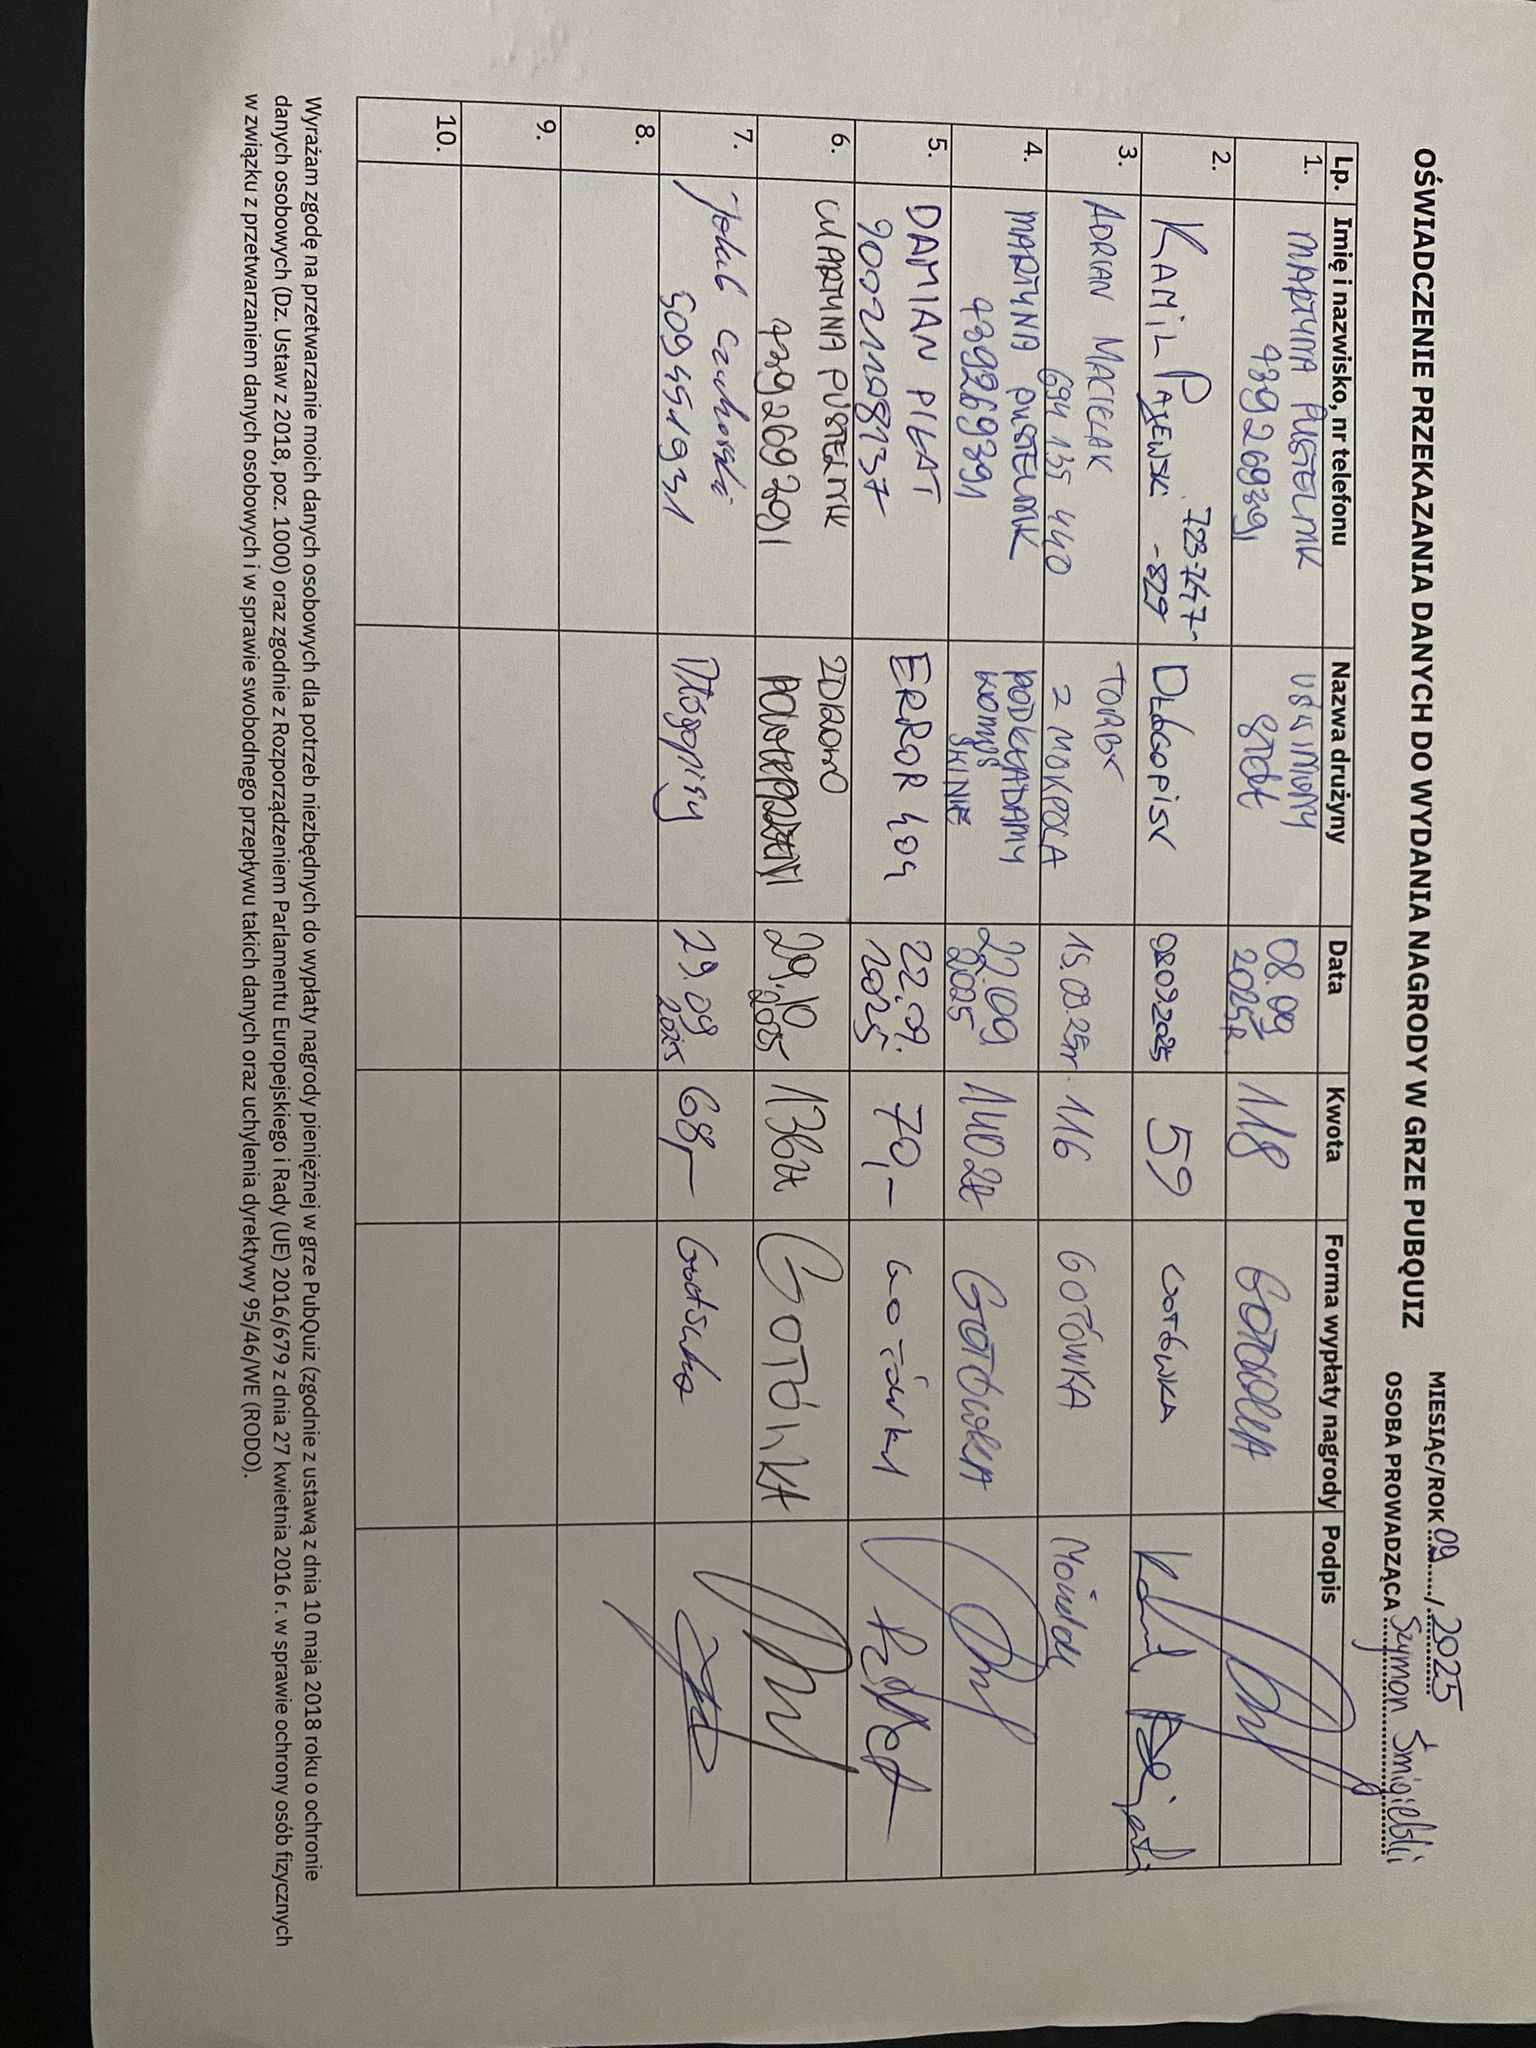 OŚWIADCZENIE PRZEKAZANIA DANYCH DO WYDANIA NAGRODY W GRZE PUBQUIZ
MIESIĄC/ROK 09 / 2025
OSOBA PROWADZĄCA Szymon Śmigielski
Lp. Imię i nazwisko, nr telefonu Nazwa drużyny Data Kwota Forma wypłaty nagrody Podpis
1. MARTYNA PUSTELNIK 08.09 118 GOTÓWKA
739269391 2025R.
2. KAMIL PAJEWSKI 723-747- DŁUGOPISY 08092025 59 GOTÓWKA
-829
3. ADRIAN MACIELAK TORBY 15.09.25r. 116 GOTÓWKA
694 135 440 Z MOKPOLA
4. MARTYNA PUSTELNIK PODKŁADAMY 22.09 140zł GOTÓWKA
739269391 2025
5. DAMIAN PIŁAT ERROR 404 22.09. 70,- GOTÓWKA
90021108137 2025
6. MARTYNA PUSTELNIK ZDROWO 29.10 136zł GOTÓWKA
739269391 2025
7. Jakub Długopisy 29.09 68,- Gotówka
509451931 2025
8.
9.
10.
Wyrażam zgodę na przetwarzanie moich danych osobowych dla potrzeb niezbędnych do wypłaty nagrody pieniężnej w grze PubQuiz (zgodnie z ustawą z dnia 10 maja 2018 roku o ochronie
danych osobowych (Dz. Ustaw z 2018, poz. 1000) oraz zgodnie z Rozporządzeniem Parlamentu Europejskiego i Rady (UE) 2016/679 z dnia 27 kwietnia 2016 r. w sprawie ochrony osób fizycznych
w związku z przetwarzaniem danych osobowych i w sprawie swobodnego przepływu takich danych oraz uchylenia dyrektywy 95/46/WE (RODO).